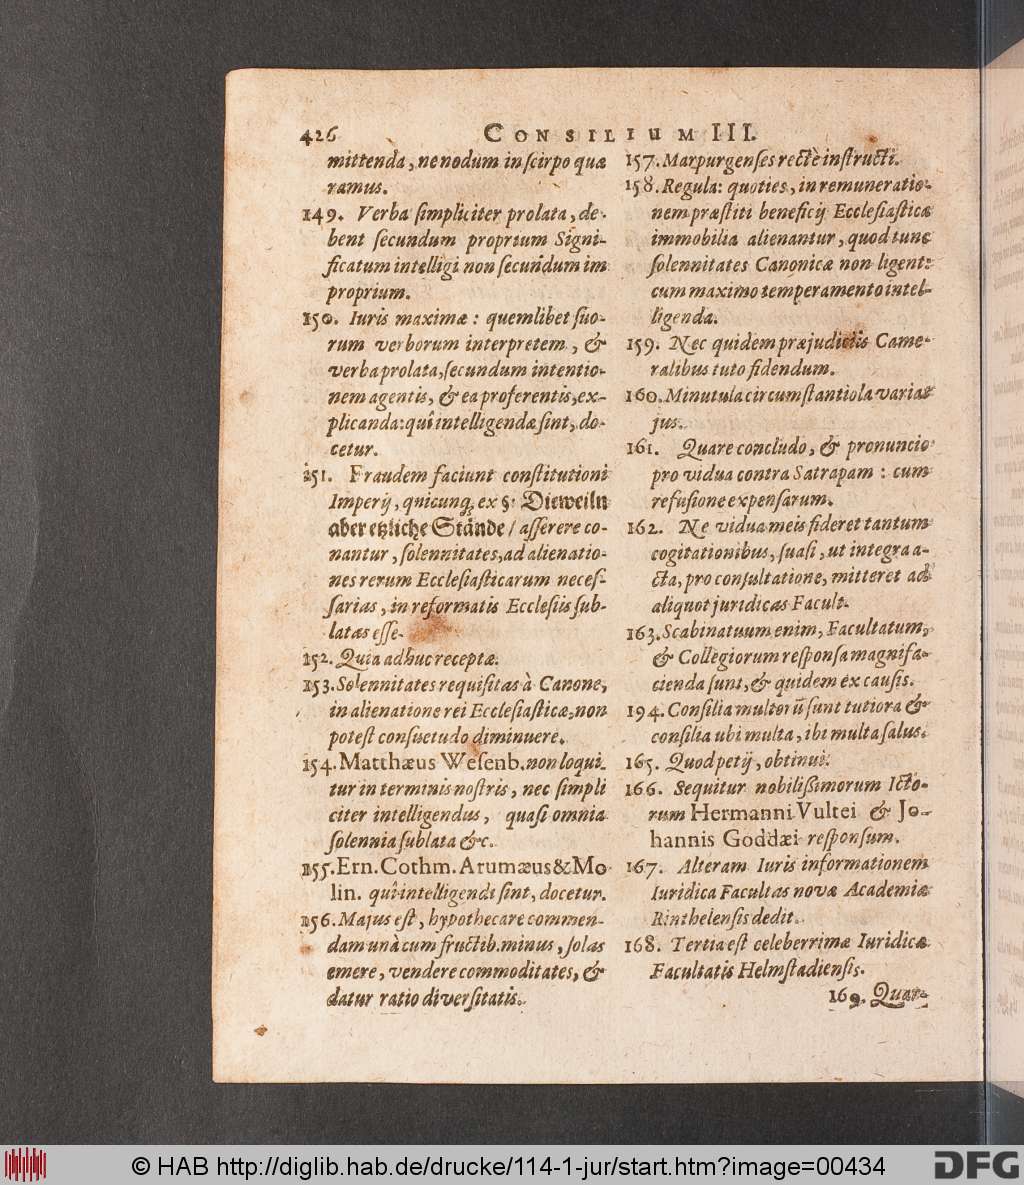 426 CONSILIUM III.
mittenda, ne nodum in scirpo quæ
ramus.
149. Verba simpliciter prolata, de-
bent secundum proprium Signi-
ficatum intelligi non secundum im
proprium.
150. Iuris maximæ : quemlibet suo-
rum verborum interpretem, &
verba prolata, secundum intentio-
nem agentis, & ea proferentis, ex-
plicanda: quî intelligendæ sint, do-
cetur.
151. Fraudem faciunt constitutioni
Imperij, qnicunq; ex §: Dieweiln
aber etzliche Stände / asserere co-
nantur, solennitates, ad alienatio-
nes rerum Ecclesiasticarum neces-
sarias, in reformatis Ecclesiis sub-
latas esse.
152. Quia adhuc receptæ.
153. Solennitates requisitas à Canone,
in alienatione rei Ecclesiasticæ, non
potest consuetudo diminuere.
154. Matthæus Wesenb. non loqui-
tur in terminis nostris, nec simpli
citer intelligendus, quasi omnia
solennia sublata &c.
155. Ern. Cothm. Arumæus & Mo
lin. quî intelligendi sint, docetur.
156. Majus est, hypothecare commen-
dam unà cum fructib. minus, solas
emere, vendere commoditates, &
datur ratio diversitatis.
157. Marpurgenses rectè instructi.
158. Regula: quoties, in remuneratio-
nem præstiti beneficij Ecclesiasticæ
immobilia alienantur, quod tunc
solennitates Canonicæ non ligent:
cum maximo temperamento intel-
ligenda.
159. Nec quidem præjudiciis Came-
ralibus tuto fidendum.
160. Minutula circumstantiola variat
jus.
161. Quare concludo, & pronuncio
pro vidua contra Satrapam : cum
refusione expensarum.
162. Ne vidua meis fideret tantum
cogitationibus, suasi, ut integra a-
cta, pro consultatione, mitteret ad
aliquot juridicas Facult.
163. Scabinatuum enim, Facultatum,
& Collegiorum responsa magnifa-
cienda sunt, & quidem ex causis.
194. Consilia multorū sunt tutiora &
consilia ubi multa, ibi multa salus.
165. Quod petij, obtinui.
166. Sequitur nobilissimorum Icto-
rum Hermanni Vultei & Jo-
hannis Goddæi responsum.
167. Alteram Iuris informationem
Iuridica Facultas novæ Academiæ
Rinthelensis dedit.
168. Tertia est celeberrimæ Iuridicæ
Facultatis Helmstadiensis.
169. Quar-
© HAB http://diglib.hab.de/drucke/114-1-jur/start.htm?image=00434
DFG